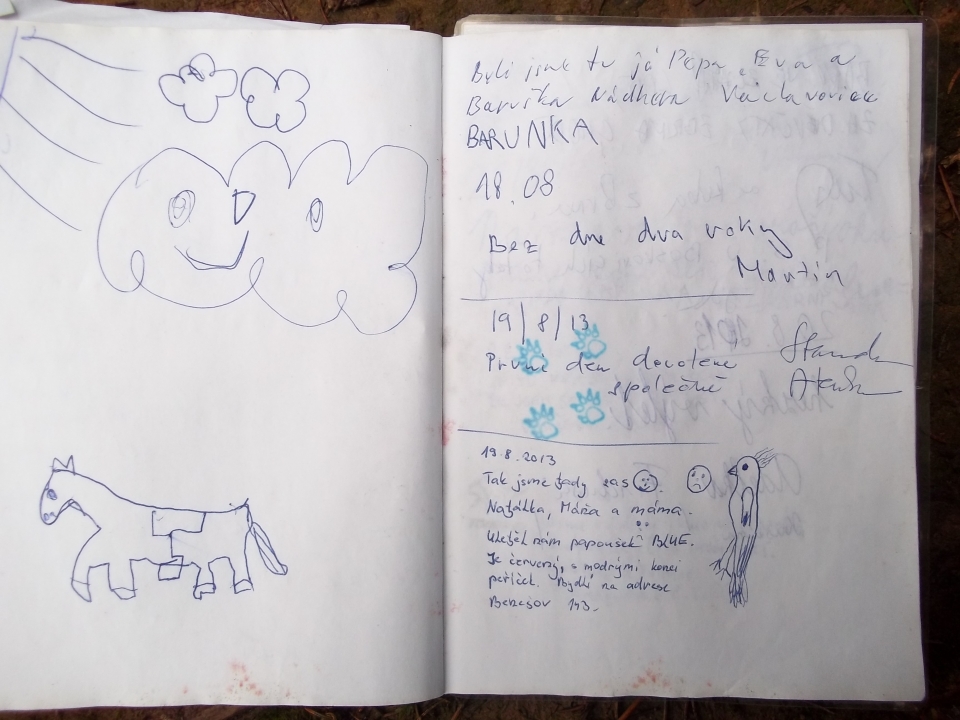 Byli jsme tu já Pepa, Eva a
Baruška Nádhera
BARUNKA
18.08
Bez dne dva roky
Martin
19/8/13
První den dovolené
společně
19.8.2013
Tak jsme tady zas
Natálka, Máňa a máma.
Uletěl nám papoušek BLUE.
Je červený, s modrými konci
peříček. Bydlí na adrese
Benešov 143.